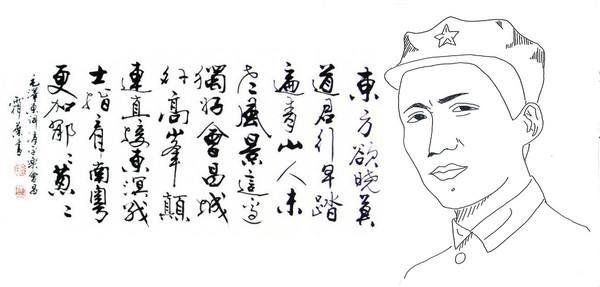 東方欲曉莫
道君行早踏
遍青山人未
老風景這邊
獨好會昌城
外高峰顛
連直接東溟戰
士指看南粵
更加郁々葱々
毛澤東詞清平樂會昌